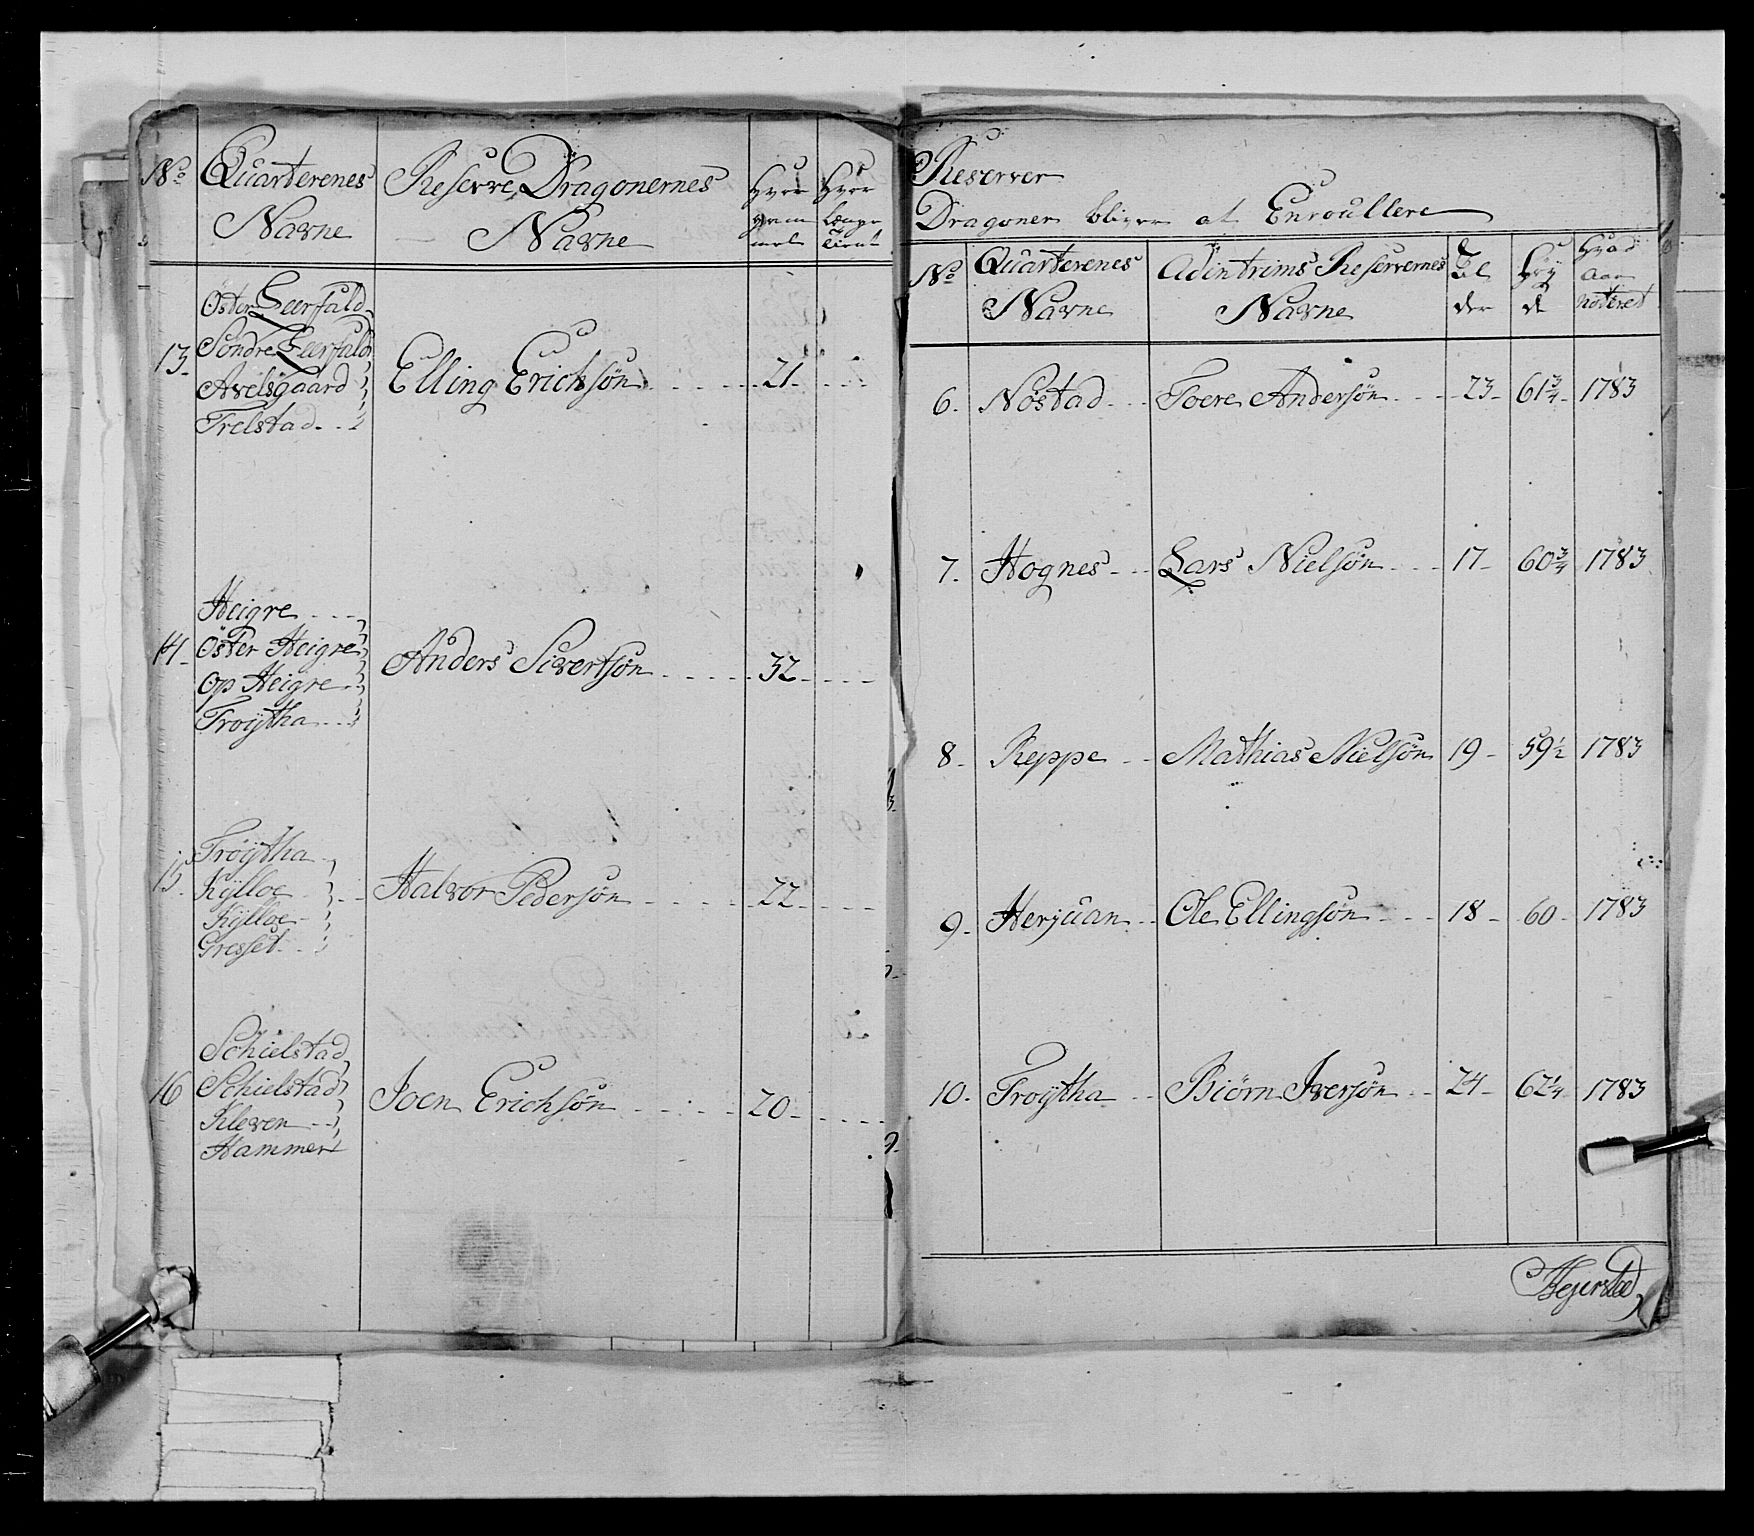 No
Quarterenes
Navne
Reserve Dragonernes
Navne
Hvor
gam
mel
Hvor
længe
tient
13.
Öster Leerfald
Söndre Leerfald
Avelsgaard
Trelstad
Elling Erichsøn
21.
14.
Heigre
Öster Heigre
Op Heigre
Troÿtha
Anders Sivertsøn
32.
15.
Trøÿtha
Kÿlloe
Kÿlloe
Gresset
Halvor Pedersøn
22.
16
Schielstad
Schielstad
Kleven
Hammer
Joen Erichsøn
20.
Reserver
Dragoner bliver at Enroullere
No
Quarterenes
Navne
Adintrims Reservernes
Navne
Al
der
Höÿ
de
Hvad
Aar
noteret
6. Nöstad Toere Andersøn 23. 61 3/4 1783
7. Hognes Lars Nielsøn 17 60 3/4 1783
8. Reppe Mathias Nielsøn 19 59 1/2 1783
9. Herjuan Ole Ellingsøn 18 60 1783
10. Troÿtha Biörn Iversøn 24 62 1/4 1783